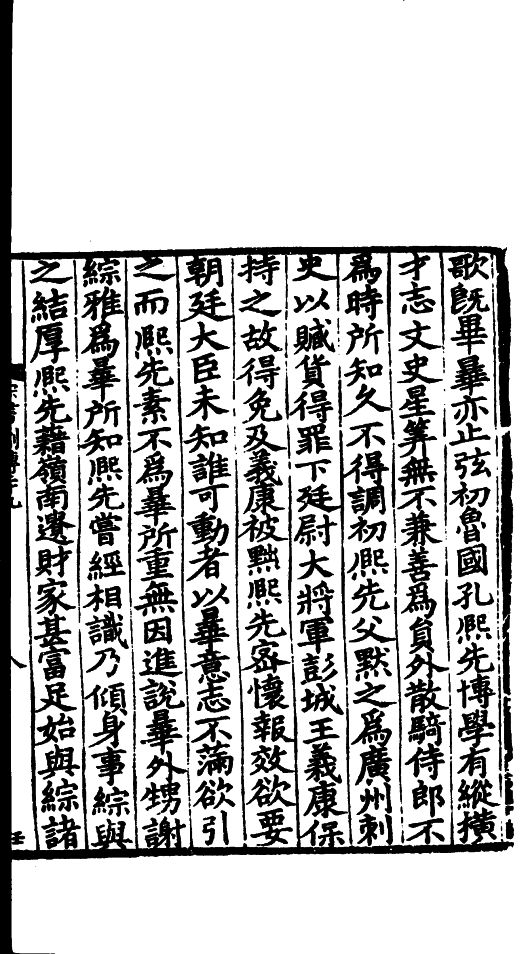 歌既畢曄亦止弦初魯國孔熈先博學有縱橫
才志文史星筭無不兼善爲貟外散騎侍郎不
爲時所知久不得調初熈先父默之爲廣州刺
史以贓貨得罪下廷尉大將軍彭城王義康保
持之故得免及義康被黜熈先密懷報效欲要
朝廷大臣未知誰可動者以曄意志不滿欲引
之而熈先素不爲曄所重無因進說曄外甥謝
綜雅爲曄所知熈先嘗經相識乃傾身事綜與
之結厚熈先藉嶺南遺財家甚富足始與綜諸